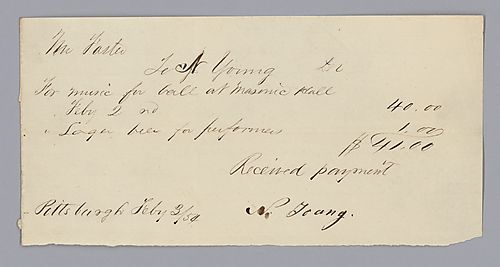 Mr Foster
To N Young Dr
For music for ball at Masonic Hall
Feby 2nd 40.00
" Lager beer for performers 1.00
$ 41.00
Received payment
Pittsburgh Feby 3/50 N. Young.